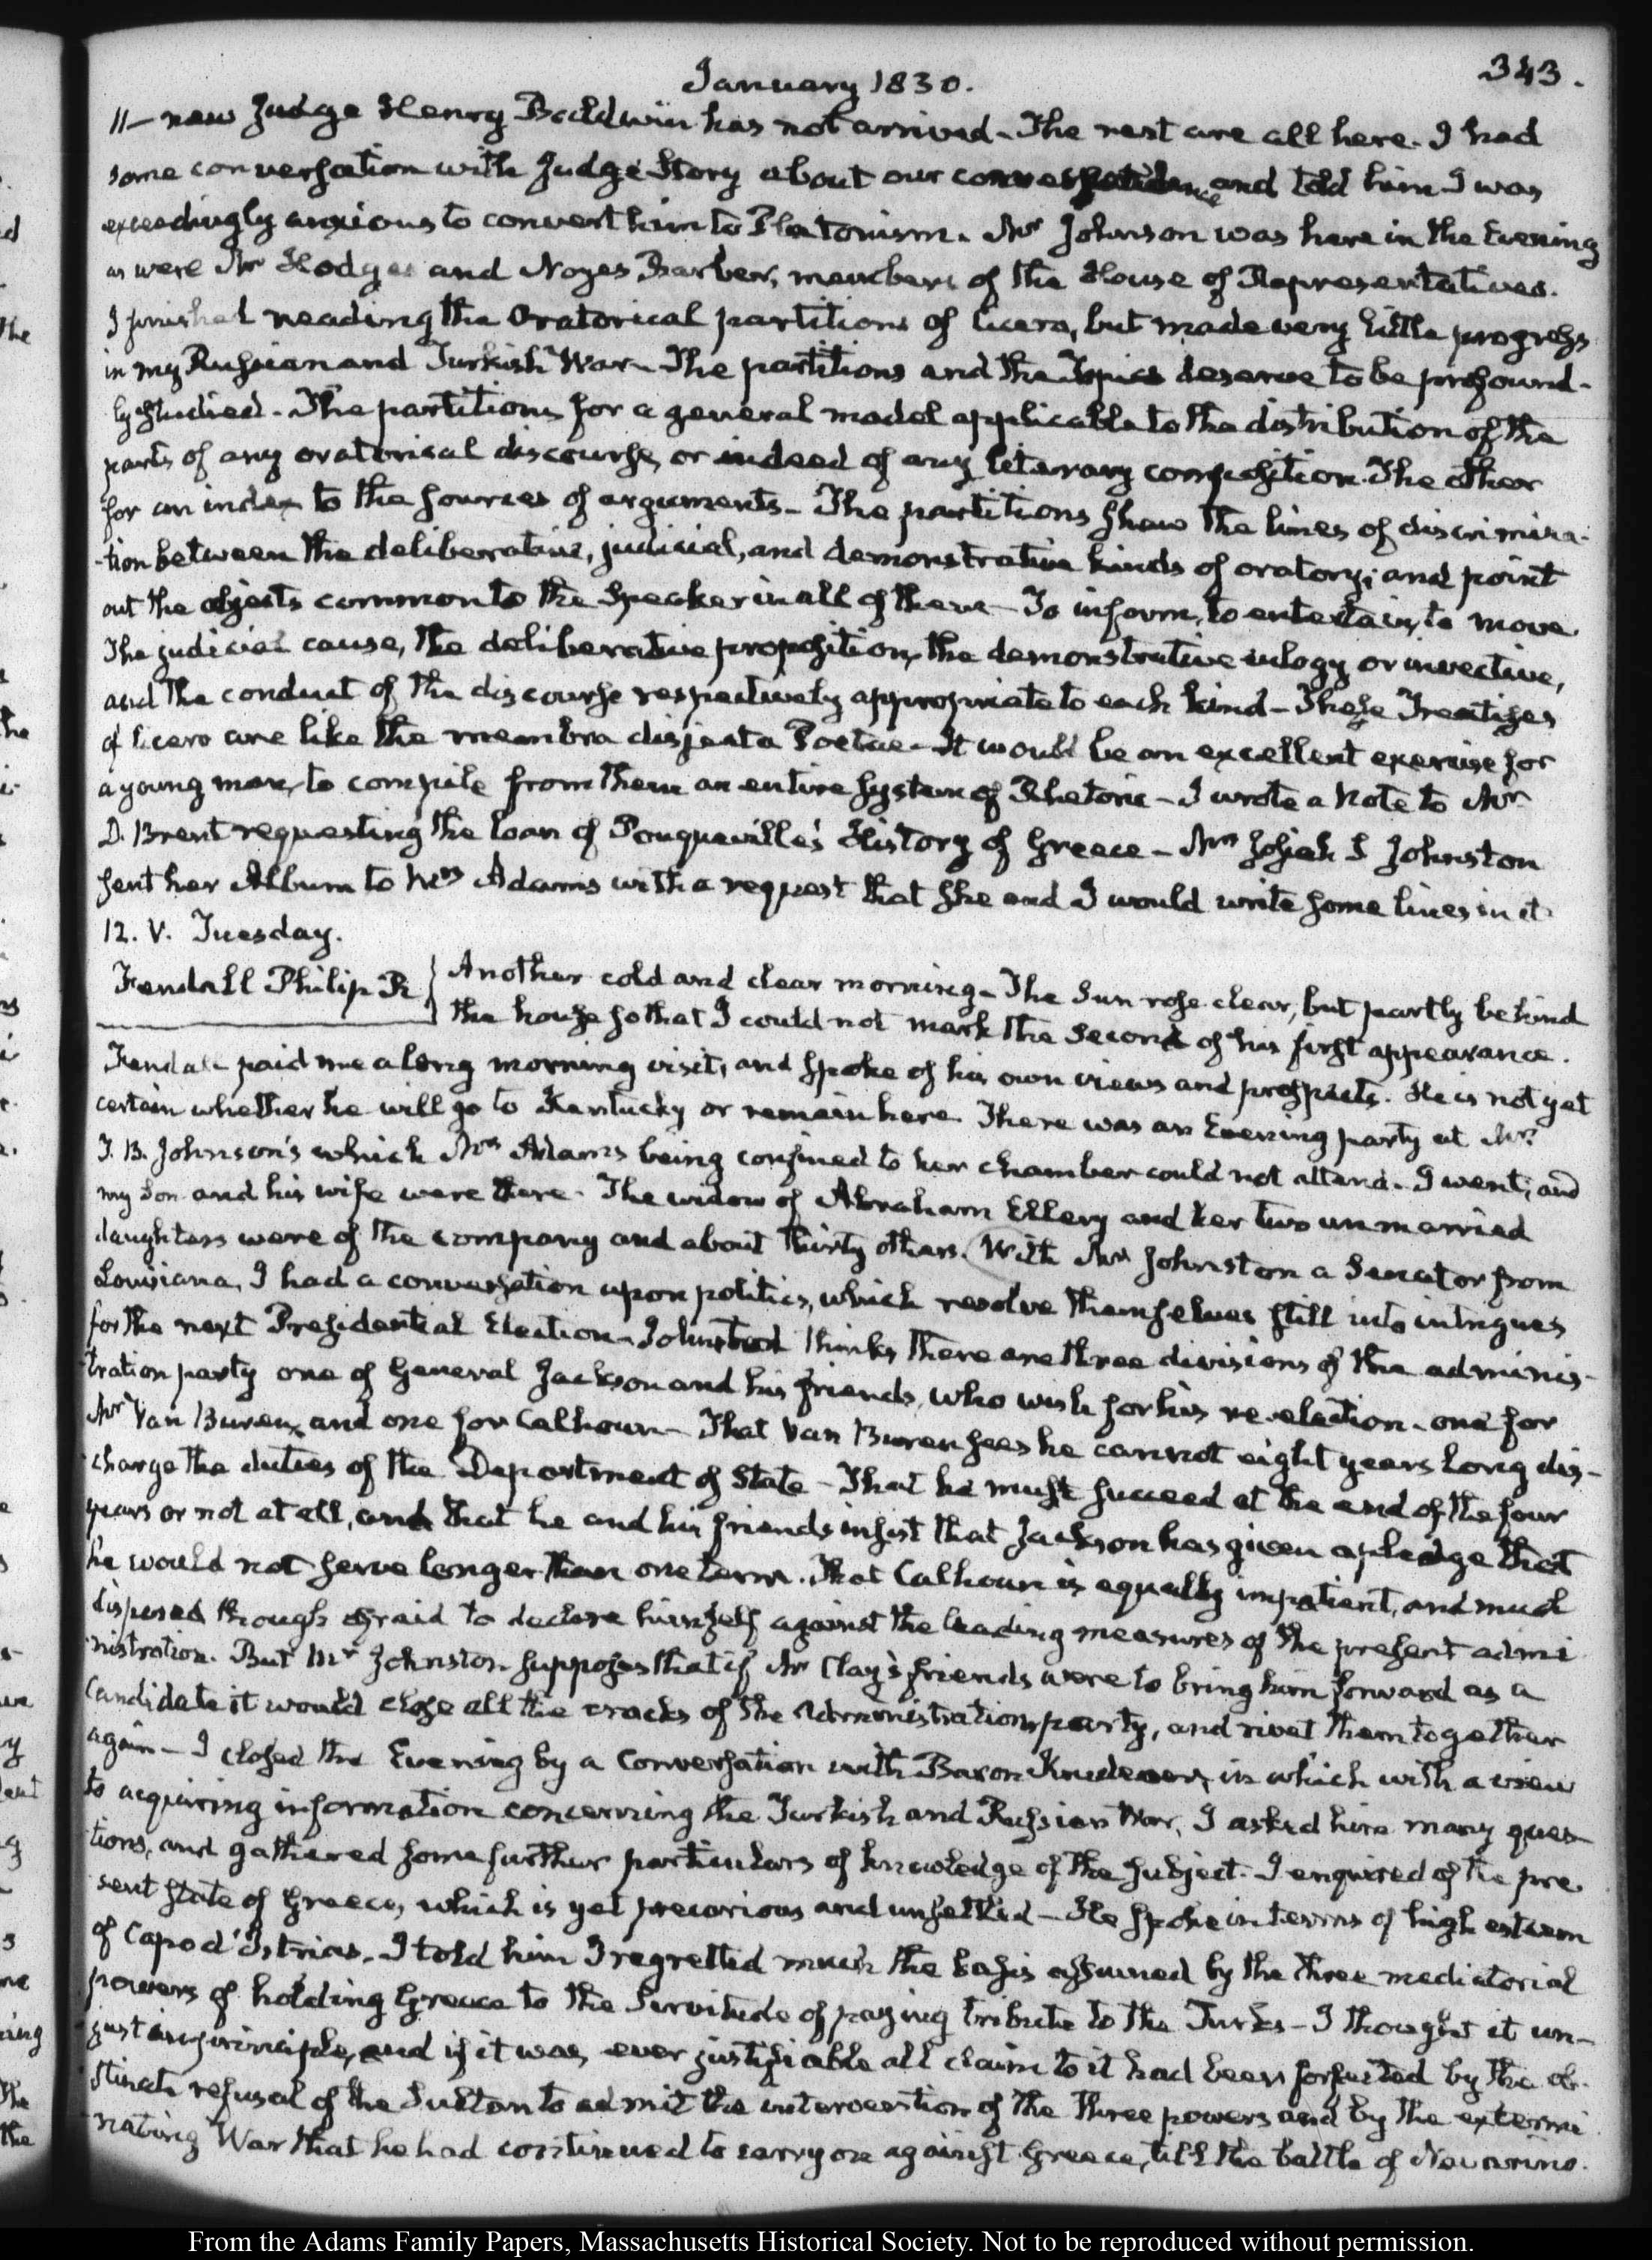 343.
January 1830.
11— new Judge Henry Baldwin has not arrived – The rest are all here. I had
some conversation with Judge Story about our correspondence and told him I was
exceedingly anxious to convert him to Platonism. Mr Johnson was here in the Evening
as were Mr Hodges and Noyes Barber, members of the House of Representatives.
I finished reading the Oratorical partitions of Cicero, but made very little progress
in my Russian and Turkish War – The partitions and the Topics deserve to be profound-
ly studied – The partitions for a general model applicable to the distribution of the
parts of any oratorical discourse, or indeed of any literary composition. The other
for an index to the sources of arguments – The partitions show the lines of discrimina-
-tion between the deliberative, judicial, and demonstrative kinds of oratory; and point
out the objects common to the Speaker in all of them – To inform, to entertain, to move
The judicial cause, the deliberative proposition, the demonstrative eulogy or invective,
and the conduct of the discourse respectively appropriate to each kind – These Treatises
of Cicero are like the membra disjecta Poetae – It would be an excellent exercise for
a young man, to compile from them an entire system of Rhetoric – I wrote a Note to Mr
D. Brent requesting the loan of Pouqueville's History of Greece – Mrs Josiah S Johnston
sent her Album to Mrs Adams with a request that she and I would write some lines in it
12. V. Tuesday.
Fendall Philip R } Another cold and clear morning – The Sun rose clear, but partly behind
the house so that I could not mark the second of his first appearance.
Fendall paid me a long morning visit, and spoke of his own views and prospects. He is not yet
certain whether he will go to Kentucky or remain here. There was an Evening party at Mr
J. B. Johnson's which Mrs Adams being confined to her chamber could not attend. I went, and
my Son and his wife were there. The widow of Abraham Ellery and her two unmarried
daughters were of the company and about thirty others. With Mr Johnston a Senator from
Louisiana, I had a conversation upon politics, which resolve themselves still into intrigues
for the next Presidential Election – Johnston thinks there are three divisions of the adminis-
tration party one of General Jackson and his friends, who wish for his re-election – one for
Mr Van Buren, and one for Calhoun – That Van Buren sees he cannot eight years long dis-
charge the duties of the Department of State – That he must succeed at the end of the four
years or not at all, and that he and his friends insist that Jackson has given a pledge that
he would not serve longer than one term. That Calhoun is equally impatient, and much
disposed though afraid to declare himself against the leading measures of the present admi
nistration. But Mr Johnston supposes that if Mr Clay's friends were to bring him forward as a
Candidate it would close all the cracks of the Administration party, and rivet them together
again – I closed the Evening by a Conversation with Baron Krudener, in which with a view
to acquiring information concerning the Turkish and Russian War, I asked him many ques-
tions, and gathered some further particulars of knowledge of the subject. I enquired of the pre
sent state of Greece, which is yet precarious and unsettled – He spoke in terms of high esteem
of Capo d'Istrias. I told him I regretted much the basis assumed by the three mediatorial
powers of holding Greece to the servitude of paying tribute to the Turks – I thought it un-
just in principle, and if it was ever justifiable all claim to it had been forfeited by the ob-
stinate refusal of the Sultan to admit the intervention of the three powers and by the extermi
nating War that he had continued to carry on against Greece, till the battle of Navarino.
From the Adams Family Papers, Massachusetts Historical Society. Not to be reproduced without permission.